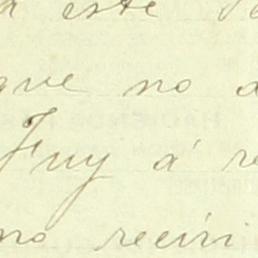 este
que no
Fuy á re
no recivi